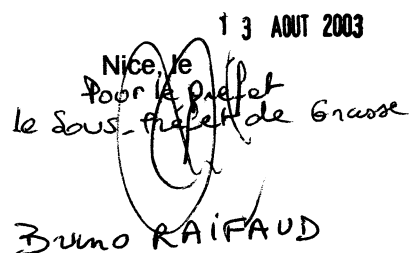 13 AOUT 2003
Nice, le
Pour le préfet
le Sous-Préfet de Grasse
Bruno RAIFAUD